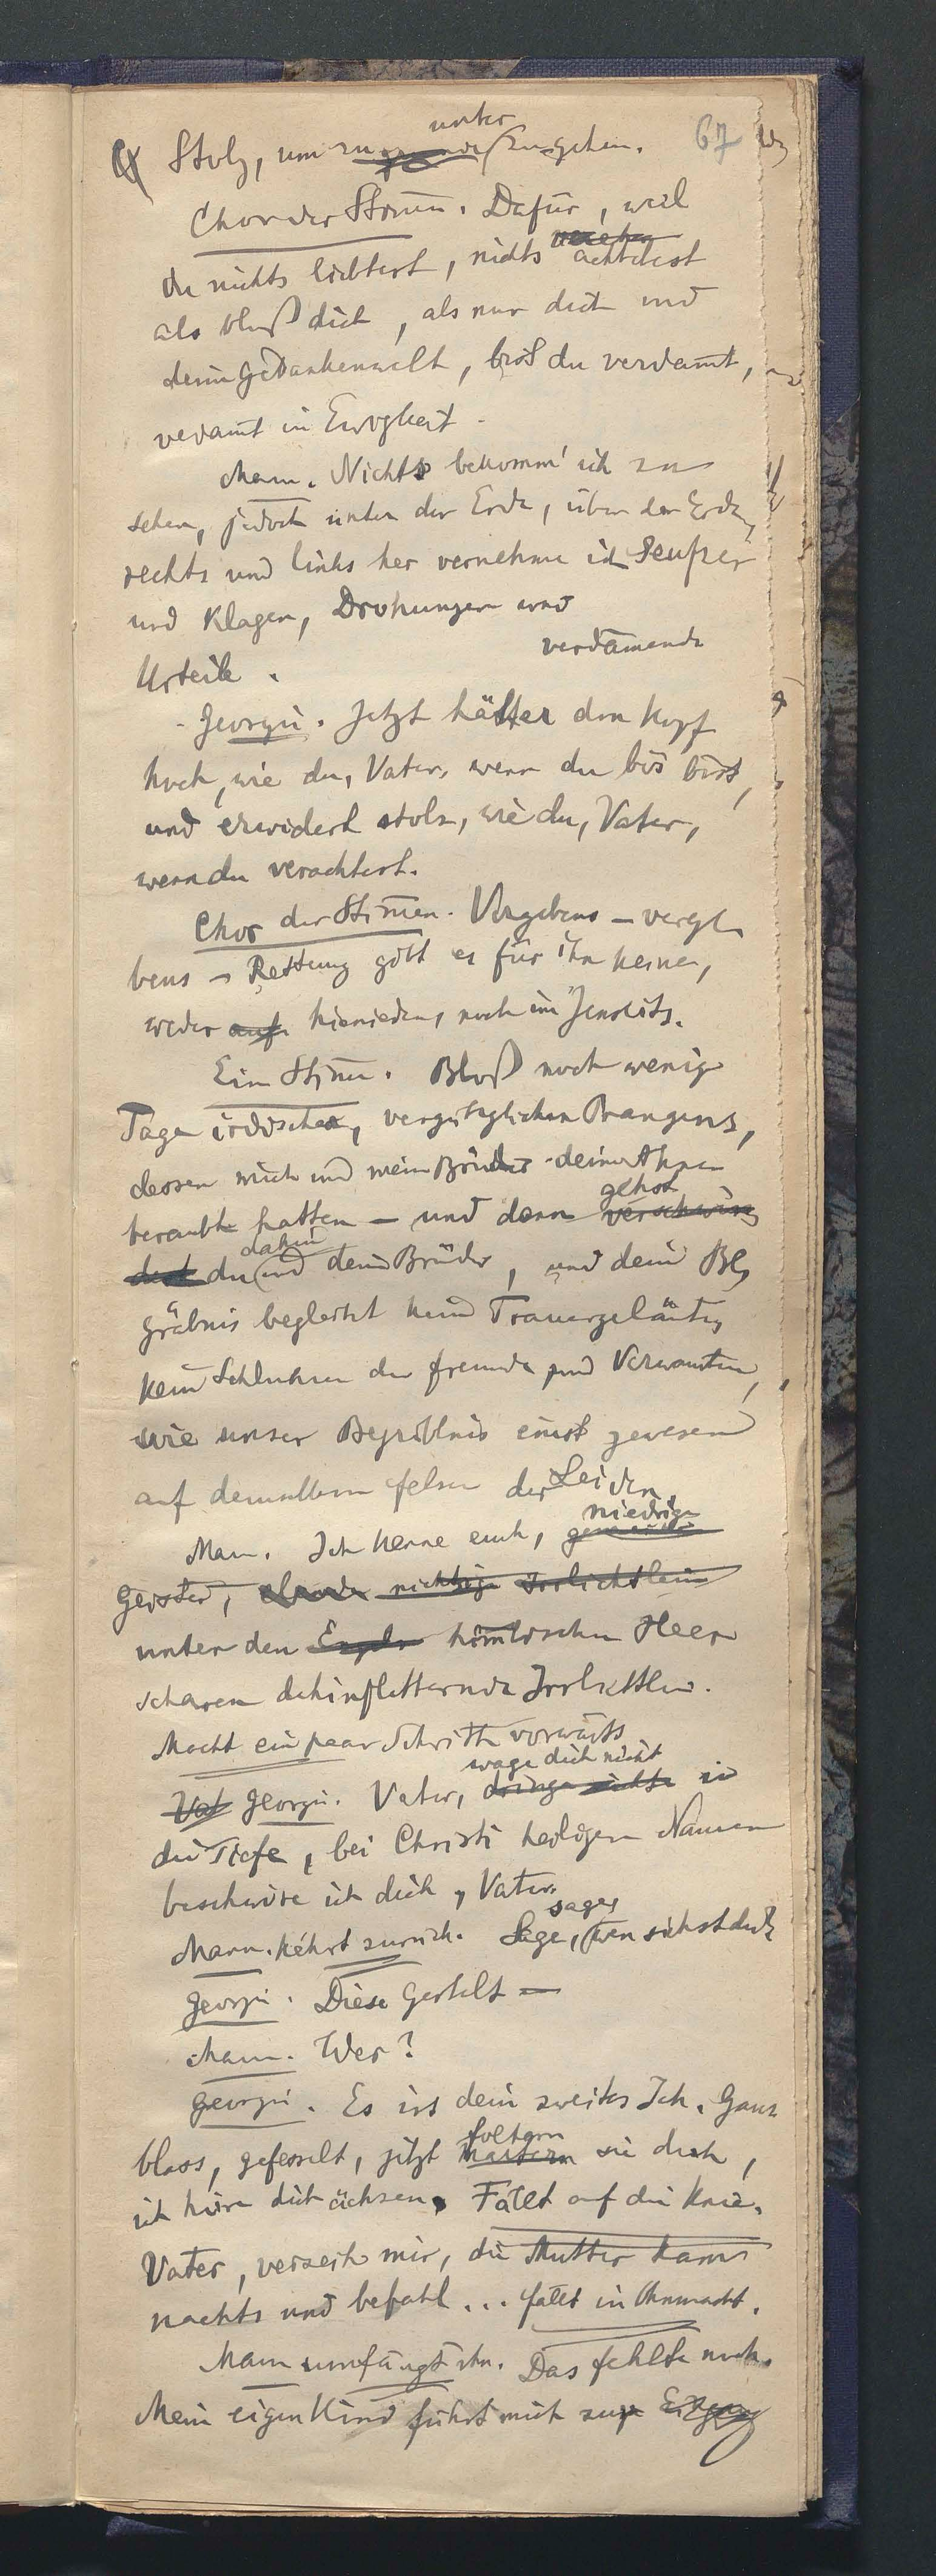 unter
Stolz, um zu zugehen. 67
Chor der Stimen. Dafür, weil
du nichts liebtest, nichts achtetest
als bloß dich, als nur dich und
deine Gedankenwelt, bist du verdamt,
verdamt in Ewigkeit.
Mann. Nichts bekomm' ich zu
sehen, jedoch unter der Erde, über der Erde,
rechts und links her vernehme ich Seufzer
und Klagen, Drohungen und
verdamende
Urteile.
Georgii. Jetzt hält er den Kopf
hoch, wie du, Vater, wenn du bös bist,
und erwidert stolz, wie du, Vater,
wenn du verachtest.
Chor der Stimen. Vergebens – verge
bens – Rettung gibt es für ihn keine,
weder auf hienieden, noch im Jenseits.
Eine Stime. Bloß noch wenige
Tage irdischen, vergänglichen Prangens,
dessen mich und meine Brüder deine Ahnen
beraubt hatten – und dann verschwin
gehst
dest du und deine Brüder, und dein Be
dahin
gräbnis begleitet kein Trauergeläute,
kein Schluchzen der Freunde und Verwandten,
wie unser Begräbnis einst gewesen
auf demselben Felsen der Leiden.
niedrige
Mann. Ich kenne euch,
Geister, elende nichtige Irrlichtlein
unter den Engeln himlischen Heer
scharen dahinflatternde Irrlichtlein.
Macht ein paar Schritte vorwärts
wage dich nicht
Vat Georgii. Vater, dringe nicht in
die Tiefe, bei Christi heiligem Namen
beschwöre ich dich, Vater.
sage,
Mann. kehrt zurück. Sage, wen siehst du?
Georgii. Diese Gestalt –
Mann. Wer?
Georgii. Es ist dein zweites Ich. Ganz
foltern
blass, gefesselt, jetzt martern sie dich,
ich höre dich ächzen. Fällt auf die Knie.
Vater, verzeih mir, die Mutter kam
nachts und befahl... fällt in Ohnmacht.
Mann umfängt ihn. Das fehlte noch.
Mein eigen Kind führt mich zur